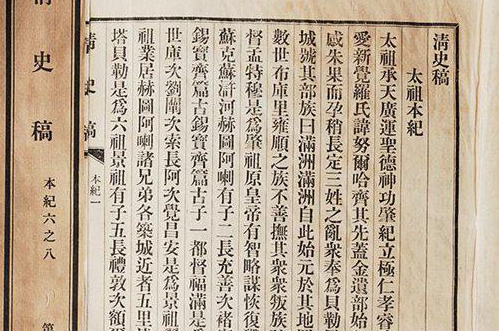 清史稿
太祖本紀
太祖承天廣運聖德神功肇紀立極仁孝睿
愛新覺羅氏諱努爾哈齊其先蓋金遺部始
感朱果而孕稍長定三姓之亂衆奉爲貝勒
城號其部族曰滿洲滿洲自此始元於其地
數世布庫里雍順之族不善撫其衆衆叛族
督孟特穆是爲肇祖原皇帝有智略謀恢復
蘇克蘇滸河赫圖阿喇有子二長充善次褚
錫寶齊篇古錫寶齊篇古子一都督福滿是
世庫次劉闡次索長阿次覺昌安是爲景祖
祖業居赫圖阿喇諸兄弟各築城近者五里
塔貝勒是爲六祖景祖有子五長禮敦次額
清史稿
本紀一
清史稿
本紀六之八
第